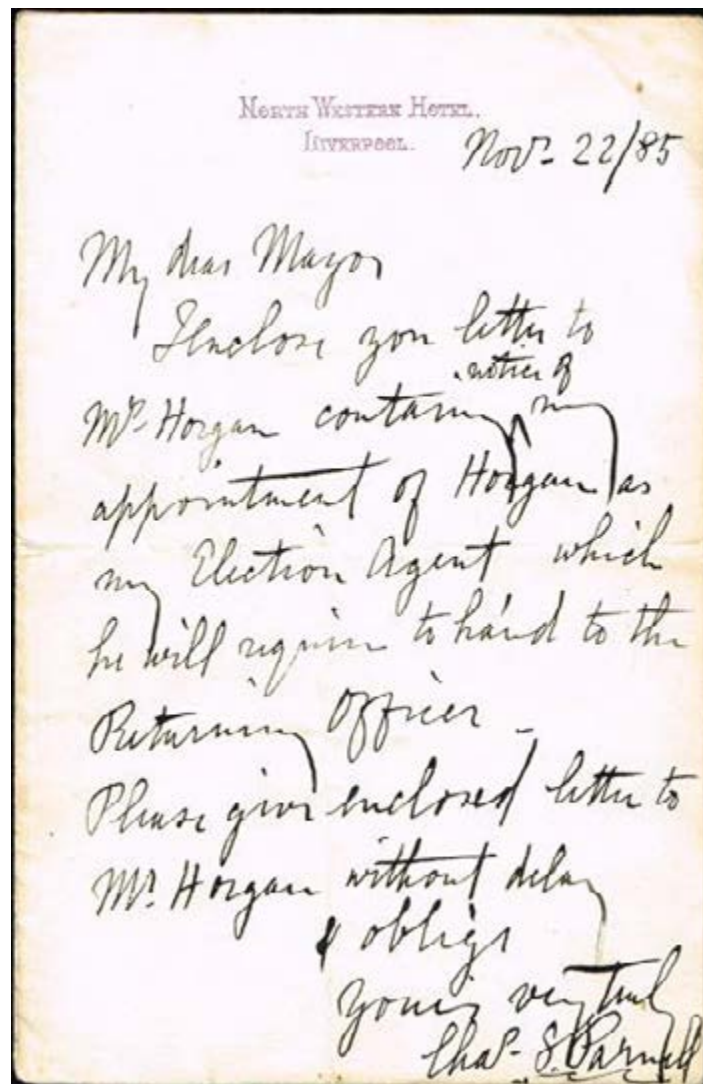 NORTH WESTERN HOTEL.
LIVERPOOL.
Novr. 22/85
My dear Mayor
I enclose you letter to
notice of
Mr. Horgan containing my
appointment of Horgan as
my Election Agent which
he will require to hand to the
Returning Officer -
Please give enclosed letter to
Mr. Horgan without delay
& oblige
Yours very truly
Chas. S. Parnell